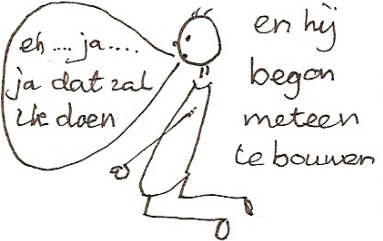 eh .... ja ....
ja dat zal
ik doen
en hij
begon
meteen
te bouwen